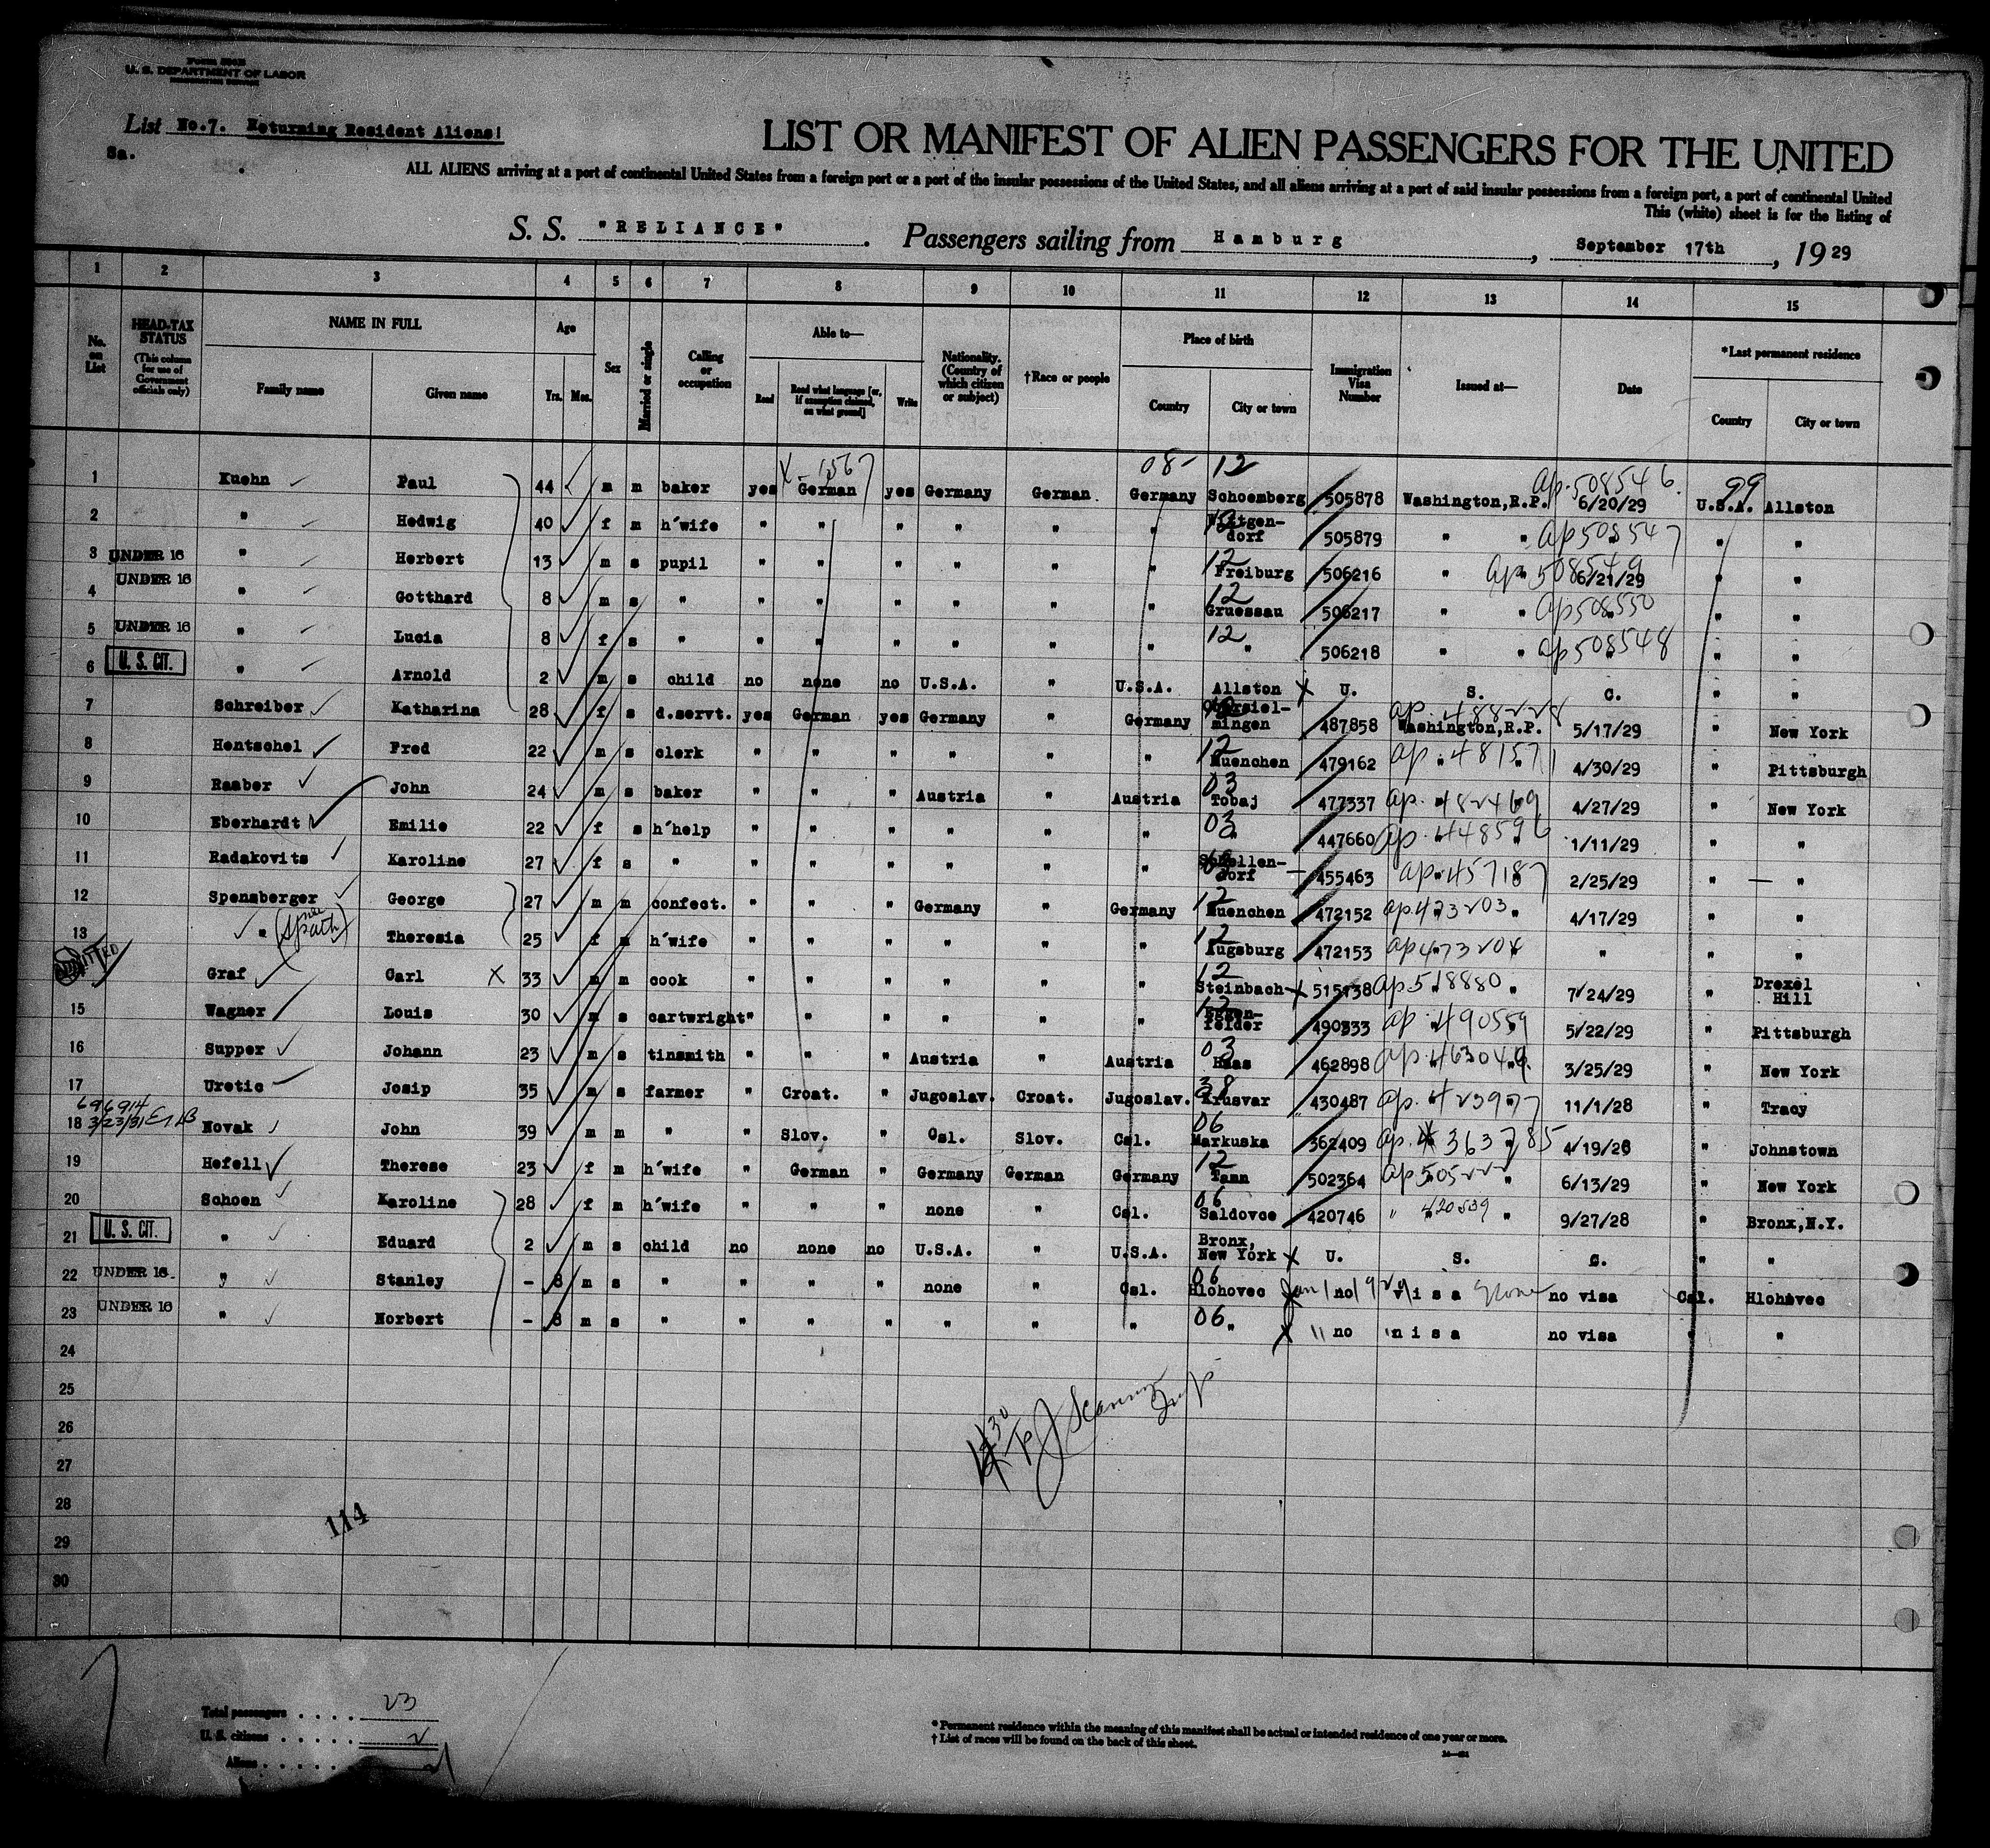 U. S. DEPARTMENT OF LABOR
List No.7. Returning Resident Aliens!
Sa.
LIST OR MANIFEST OF ALIEN PASSENGERS FOR THE UNITED
ALL ALIENS arriving at a port of continental United States from a foreign port or a port of the insular possessions of the United States, and all aliens arriving at a port of said insular possessions from a foreign port, a port of continental United
This (white) sheet is for the listing of
S. S. "RELIANCE". Passengers sailing from Hamburg, September 17th, 1929
1 2 3 4 5 6 7 8 9 10 11 12 13 14 15
No. on List
HEAD-TAX STATUS (This column for use of Government officials only)
NAME IN FULL Family name Given name
Age Yrs. Mos.
Sex
Married or single
Calling or occupation
Able to— Read Read what language [or, if exemption claimed, on what ground] Write
Nationality. (Country of which citizen or subject)
†Race or people
Place of birth Country City or town
Immigration Visa Number
Issued at—
Date
*Last permanent residence Country City or town
X 1567 08- 12 ap. 508546. 99
1 Kuehn Paul 44 m m baker yes German yes Germany German Germany Schoemberg 505878 Washington,R.P. 6/20/29 U.S.A. Allston
2 " Hedwig 40 f m h'wife " " " " " " 12 Wittgendorf 505879 " " ap 508547 " "
3 UNDER 16 " Herbert 13 m s pupil " " " " " " 12 Freiburg 506216 " ap. 508549 6/21/29 " "
4 UNDER 16 " Gotthard 8 m s " " " " " " " 12 Gruessau 506217 " " ap 508550 " "
5 UNDER 16 " Lucia 8 f s " " " " " " " 12 " 506218 " " ap 508548 " "
6 U. S. CIT. " Arnold 2 m s child no none no U.S.A. " U.S.A. Allston X U. S. C. " "
7 Schreiber Katharina 28 f s d.servt. yes German yes Germany " Germany mingen 487858 Washington,R.P. ap. 488228 5/17/29 " New York
8 Hentschel Fred 22 m s clerk " " " " " " 12 Muenchen 479162 ap. 481571 4/30/29 " Pittsburgh
9 Raaber John 24 m s baker " " " Austria " Austria 03 Tobaj 477337 ap. 482469 4/27/29 " New York
10 Eberhardt Emilie 22 f s h'help " " " " " " 03 " 447660 ap. 448596 1/11/29 " "
11 Radakovits Karoline 27 f s " " " " " " " dorf 455463 ap. 457187 2/25/29 " — "
12 Spensberger George 27 m m confect. " " " Germany " Germany 12 Muenchen 472152 ap. 473203 4/17/29 " "
13 " (nee Spath) Theresia 25 f m h'wife " " " " " " 12 Augsburg 472153 ap 473204 " " "
ADMITTED Graf Carl X 33 m m cook " " " " " " 12 Steinbach X 515138 ap. 518880 " 7/24/29 " Drexel Hill
15 Wagner Louis 30 m s cartwright " " " " " " 12 Eggenfelder 490333 ap. 490559 5/22/29 " Pittsburgh
16 Supper Johann 23 m s tinsmith " " " Austria " Austria 03 Haas 462898 ap. 463046 3/25/29 " New York
17 Uretic Josip 35 m s farmer " Croat. " Jugoslav. Croat. Jugoslav. 38 Krusvar 430487 ap. 423977 11/1/28 " Tracy
696914
18 3/23/31 Novak John 39 m m " " Slov. " Csl. Slov. Csl. 06 Markuska 362409 ap. 363785 4/19/28 " Johnstown
19 Hefell Therese 23 f m h'wife " German " Germany German Germany 12 Tann 502364 ap 505222 " 6/13/29 " New York
20 Schoen Karoline 28 f m h'wife " " " none " Csl. 06 Saldovce 420746 " 420539 " 9/27/28 " Bronx,N.Y.
21 U. S. CIT. " Eduard 2 m s child no none no U.S.A. " U.S.A. Bronx, New York X U. S. C. " "
22 UNDER 16. " Stanley – 8 m s " " " " none " Csl. 06 Hlohovec Jan 1 1929 no visa none no visa Csl. Hlohovec
23 UNDER 16 " Norbert – 8 m s " " " " " " " 06 " X " no visa no visa " "
24
25
26
27
28
29
30
114
Total passengers . . . . 23
U. S. citizens . . . . . 2
Aliens . . . . . .
* Permanent residence within the meaning of this manifest shall be actual or intended residence of one year or more.
† List of races will be found on the back of this sheet.